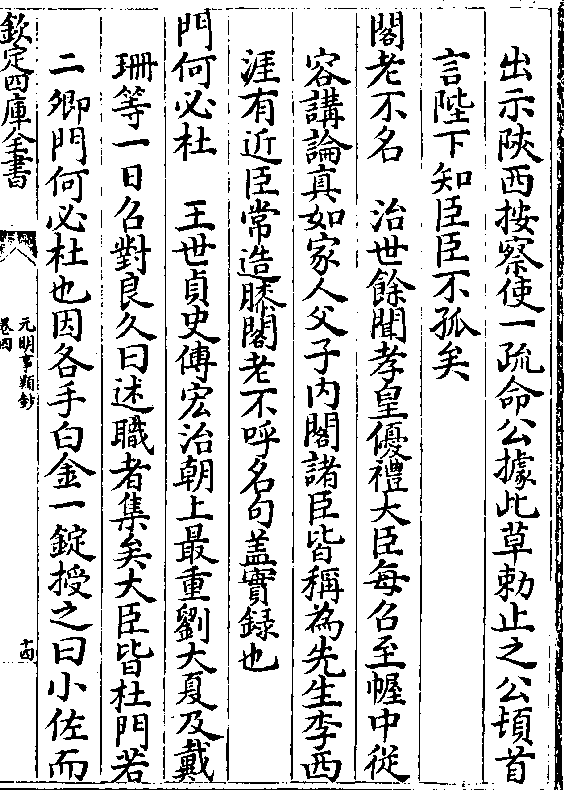 出示陜西按察使一疏命公據此草勅止之公頓首
言陛下知臣臣不孤矣
閣老不名　治世餘聞孝皇優禮大臣每召至幄中從
容講論真如家人父子内閣諸臣皆稱為先生李西
涯有近臣常造膝閣老不呼名句盖實録也
門何必杜　王世貞史傳宏治朝上最重劉大夏及戴
珊等一日召對良久曰述職者集矣大臣皆杜門若
二卿門何必杜也因各手白金一錠授之曰小佐而
欽定四庫全書
元明事類鈔
卷四
十四